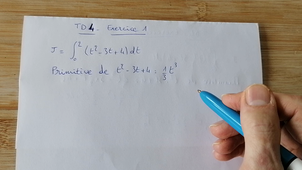 TD4. Exercice 1
J = ∫₁² (t² - 3t + 4) dt
Primitive de t² - 3t + 4 : 1/3 t³